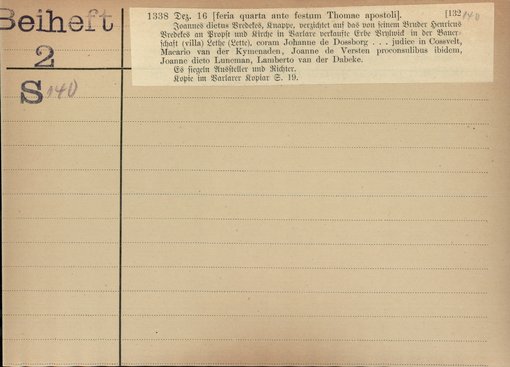 Beiheft
2
S 140
1338 Dez. 16 [feria quarta ante festum Thomae apostoli]. [132 140
Joannes dictus Bredekes, Knappe, verzichtet auf das von seinem Bruder Henricus
Bredekes an Propst und Kirche in Varlare verkaufte Erbe Bryswick in der Bauer-
schaft (villa) Lethe (Lette), coram Johanne de Dossborg . . . judice in Cosvelt,
Macario van der Kymenaden, Joanne de Versten proconsulibus ibidem,
Joanne dicto Luneman, Lamberto van der Dabeke.
Es siegeln Aussteller und Richter.
Kopie im Varlarer Kopiar S. 19.